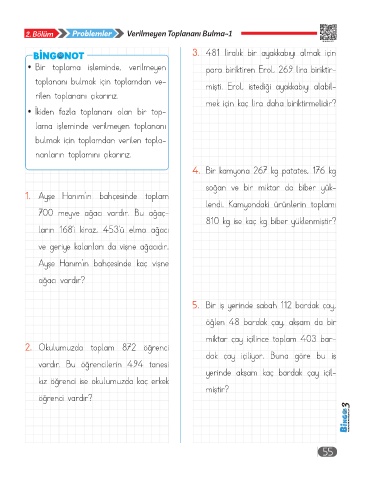 2. Bölüm Problemler Verilmeyen Toplananı Bulma-1
BİNGONOT
• Bir toplama işleminde, verilmeyen
toplananı bulmak için toplamdan ve-
rilen toplananı çıkarırız.
• İkiden fazla toplananı olan bir top-
lama işleminde verilmeyen toplananı
bulmak için toplamdan verilen topla-
nanların toplamını çıkarırız.
1. Ayşe Hanım'ın bahçesinde toplam
700 meyve ağacı vardır. Bu ağaç-
ların 168'i kiraz, 453'ü elma ağacı
ve geriye kalanları da vişne ağacıdır.
Ayşe Hanım'ın bahçesinde kaç vişne
ağacı vardır?
2. Okulumuzda toplam 872 öğrenci
vardır. Bu öğrencilerin 494 tanesi
kız öğrenci ise okulumuzda kaç erkek
öğrenci vardır?
3. 481 liralık bir ayakkabıyı almak için
para biriktiren Erol, 269 lira biriktir-
mişti. Erol, istediği ayakkabıyı alabil-
mek için kaç lira daha biriktirmelidir?
4. Bir kamyona 267 kg patates, 176 kg
soğan ve bir miktar da biber yük-
lendi. Kamyondaki ürünlerin toplamı
810 kg ise kaç kg biber yüklenmiştir?
5. Bir iş yerinde sabah 112 bardak çay,
öğlen 48 bardak çay, akşam da bir
miktar çay içilince toplam 403 bar-
dak çay içiliyor. Buna göre bu iş
yerinde akşam kaç bardak çay içil-
miştir?
BİNGO 3
55